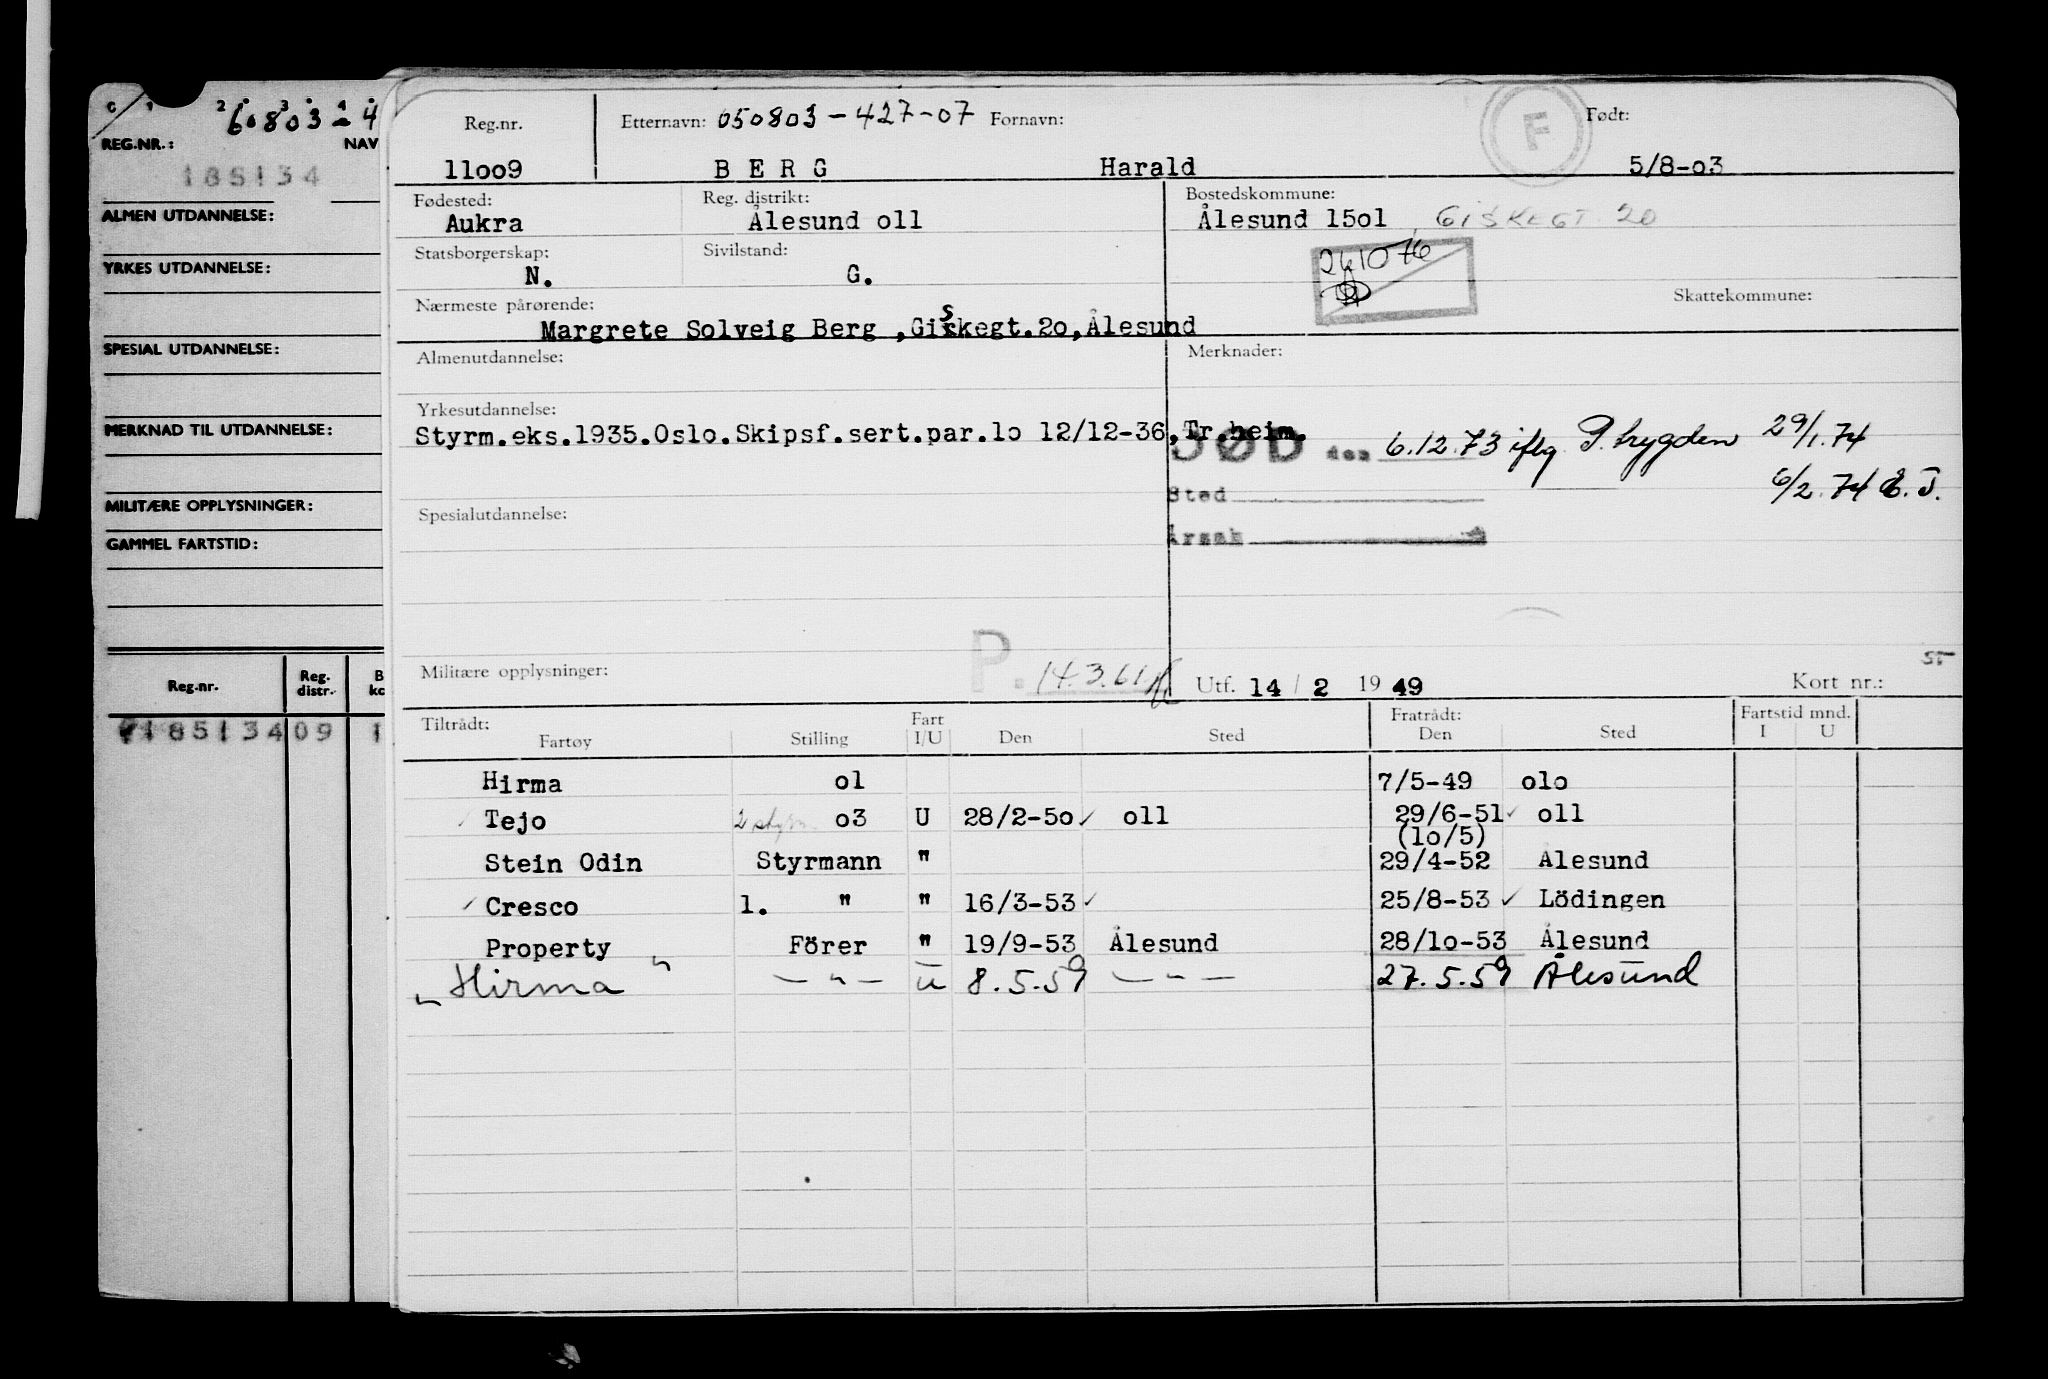 REG.NR.:
NAV
185134
ALMEN UTDANNELSE:
YRKES UTDANNELSE:
SPESIAL UTDANNELSE:
MERKNAD TIL UTDANNELSE:
MILITÆRE OPPLYSNINGER:
GAMMEL FARTSTID:
Reg.nr. Reg. distr.
185134 09 1
Reg.nr. Etternavn: 050803-427-07 Fornavn: F Født:
11oo9 B E R G Harald 5/8-o3
Fødested: Reg. distrikt: Bostedskommune:
Aukra Ålesund o11 Ålesund 15o1, GISKEGT. 20
Statsborgerskap: Sivilstand:
N. G. 261076
Nærmeste pårørende: Skattekommune:
Margrete Solveig Berg ,Giskegt.2o,Ålesund
Almenutdannelse: Merknader:
Yrkesutdannelse:
Styrm.eks.1935.Oslo.Skipsf.sert.par.1o 12/12-36,Tr.heim.
DØD den 6.12.73 iflg P.trygden 29/1.74
Sted 6/2.74 E.T.
Spesialutdannelse:
Årsak
Militære opplysninger: P. 14.3.61 Utf. 14 / 2 19 49 Kort nr.:
Tiltrådt: Fart Fratrådt: Fartstid mnd.
Fartøy Stilling I/U Den Sted Den Sted I U
Hirma o1 7/5-49 o1o
Tejo 2 styrm. o3 U 28/2-5o ✓ o11 29/6-51 ✓ o11
(1o/5)
Stein Odin Styrmann " 29/4-52 Ålesund
✓ Cresco 1. " " 16/3-53 ✓ 25/8-53 ✓ Lödingen
Property Förer " 19/9-53 Ålesund 28/1o-53 Ålesund
"Hirma" — " — u 8.5.59 — " — 27.5.59 Ålesund